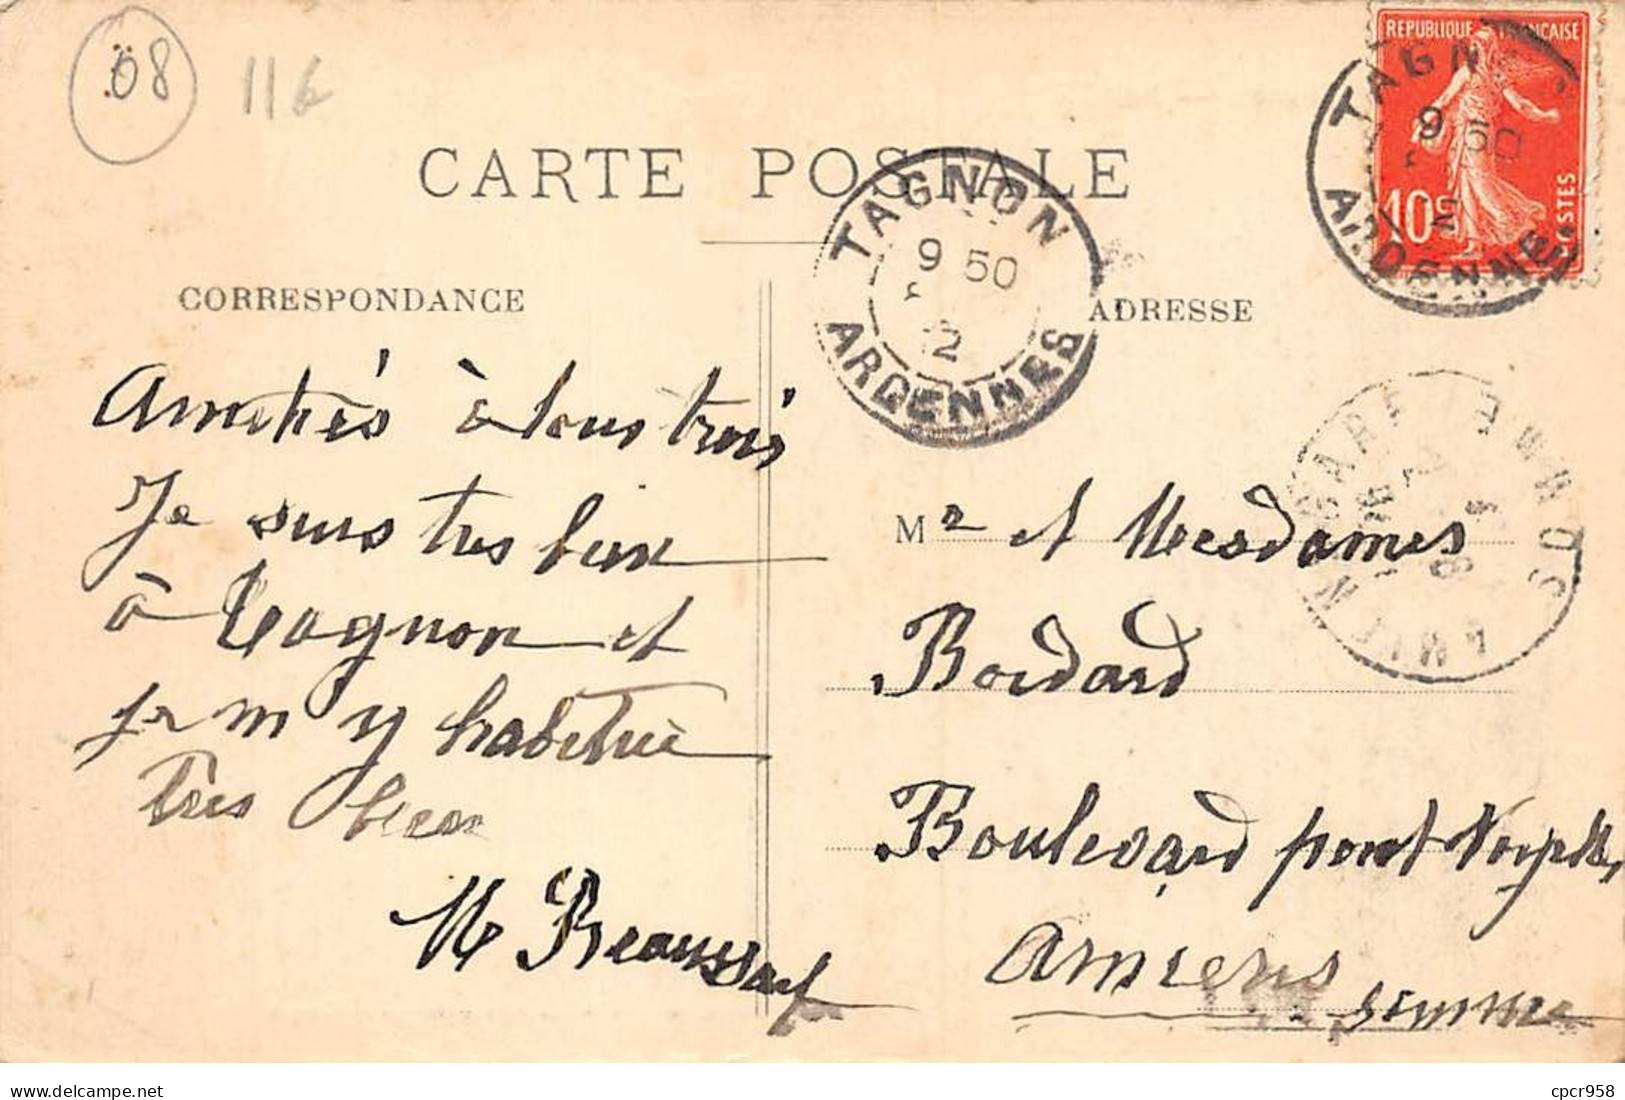 08 116
REPUBLIQUE FRANÇAISE
10c POSTES
TAGNON
9 50
2
ARDENNES
CARTE POSTALE
TAGNON
9 50
12
ARDENNES
CORRESPONDANCE
ADRESSE
AMIENS GARE SOMME
Amitiés à tous trois
Je suis tres bien
à tagnon et
je m y habitue
Très bien
M Beaussart
Mr et Mesdames
Bordard
Boulevard pont
Amiens
somme
cpcr958